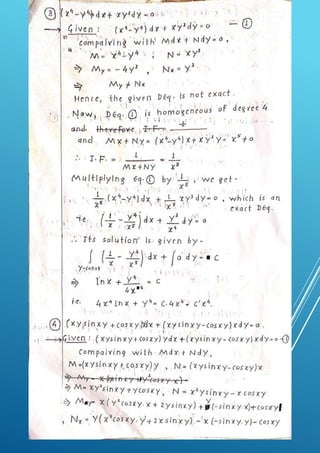 ③ (x⁴-y⁴)dx + xy³dy = 0
→ Given : (x⁴-y⁴)dx + xy³dy = 0 — ①
comparing with Mdx + Ndy = 0,
M = x⁴-y⁴ ; N = xy³
⇒ My = -4y³ , Nx = y³
⇒ My ≠ Nx
Hence, the given DEq. is not exact.
Now, DEq. ① is homogeneous of degree 4
and therefore, I.F. =
and Mx + Ny = (x⁴-y⁴)x + xy³y = x⁵ ≠ 0
∴ I.F. = 1/(Mx+Ny) = 1/x⁵
Multiplying eq. ① by 1/x⁵, we get -
1/x⁵ (x⁴-y⁴)dx + 1/x⁵ xy³dy = 0, which is an
exact DEq.
ie. (1/x - y⁴/x⁵) dx + y³/x⁴ dy = 0
∴ Its solution is given by -
∫ (1/x - y⁴/x⁵) dx + ∫ 0 dy = c
y-const
⇒ lnx + y⁴/4x⁴ = c
ie. 4x⁴ lnx + y⁴ = c.4x⁴ = c'x⁴.
④ (xysinxy + cosxy)ydx + (xysinxy - cosxy)xdy = 0.
→ Given : (xysinxy + cosxy)ydx + (xysinxy - cosxy)xdy = 0 —①
Comparing with Mdx + Ndy,
M = (xysinxy + cosxy)y , N = (xysinxy - cosxy)x
⇒ M = xy²sinxy + ycosxy , N = x²ysinxy - xcosxy
⇒ My = x(y²cosxy.x + 2ysinxy) + y(-sinxy.x) + cosxy
, Nx = y(x²cosxy.y + 2xsinxy) - x(-sinxy.y) - cosxy